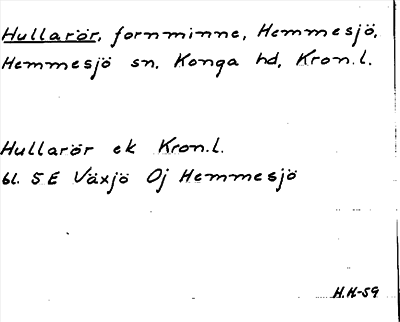 Hullarör, fornminne, Hemmesjö,
Hemmesjö sn, Konga hd, Kron.l.
Hullarör ek Kron.l.
bl. 5E Växjö Oj Hemmesjö
H.K-59